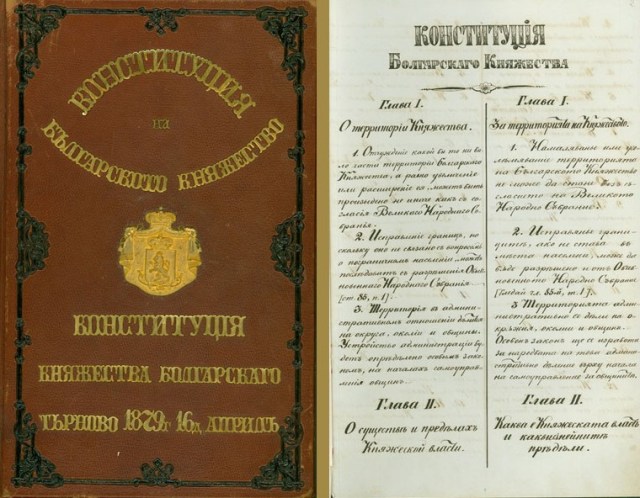 КОНСТИТУЦИЯ
на
БЪЛГАРСКОТО КНЯЖЕСТВО
КОНСТИТУЦІЯ
КНЯЖЕСТВА БОЛГАРСКАГО
ТЪРНОВО 1879г 16д. АПРИЛЪ
КОНСТИТУЦІЯ
Болгарскаго Княжества
Глава I.
О территоріи Княжества.
1. Отчужденіе какой бы то ни бы-
ло части территоріи Болгарскаго
Княжества, а равно уменьшеніе
или расширеніе ея, можетъ быть
произведено не иначе какъ съ со-
гласія Великаго Народнаго Со-
бранья.
2. Исправленіе границъ, по-
скольку оно не связано съ вопросомъ
о пограничномъ населеніи, можетъ
послѣдовать съ разрѣшенія Обык-
новеннаго Народнаго Собранія
[ст. 85, п. 1].
3. Территорія въ админи-
стративномъ отношеніи дѣлится
на округа, околіи и общины.
Устройство администраціи бу-
детъ опредѣлено особымъ зако-
номъ, на началахъ самоуправ-
ленія общинъ.
Глава II.
О существѣ и предѣлахъ
Княжеской власти.
Глава I.
За территорията на Княжеството.
1. Намаляванье или уго-
лемяванье територията
на Българското Княжество
не може да стане безъ съ-
гласието на Великото
Народно Събрание.
2. Исправянье грани-
цитѣ, ако не става въ
мѣста населени, може да
бѫде разрешено и отъ Оби-
кновенното Народно Събрание
3. Територията адми-
нистративно се дѣли на о-
крѫжия, околии и общини.
Особенъ законъ ще се изработи
за наредбата на това админи-
стративно деление върху начала
на самоуправление за общинитѣ.
Глава II.
Каква е Княжеската власть
и какви нейнитѣ
прѣдѣли.